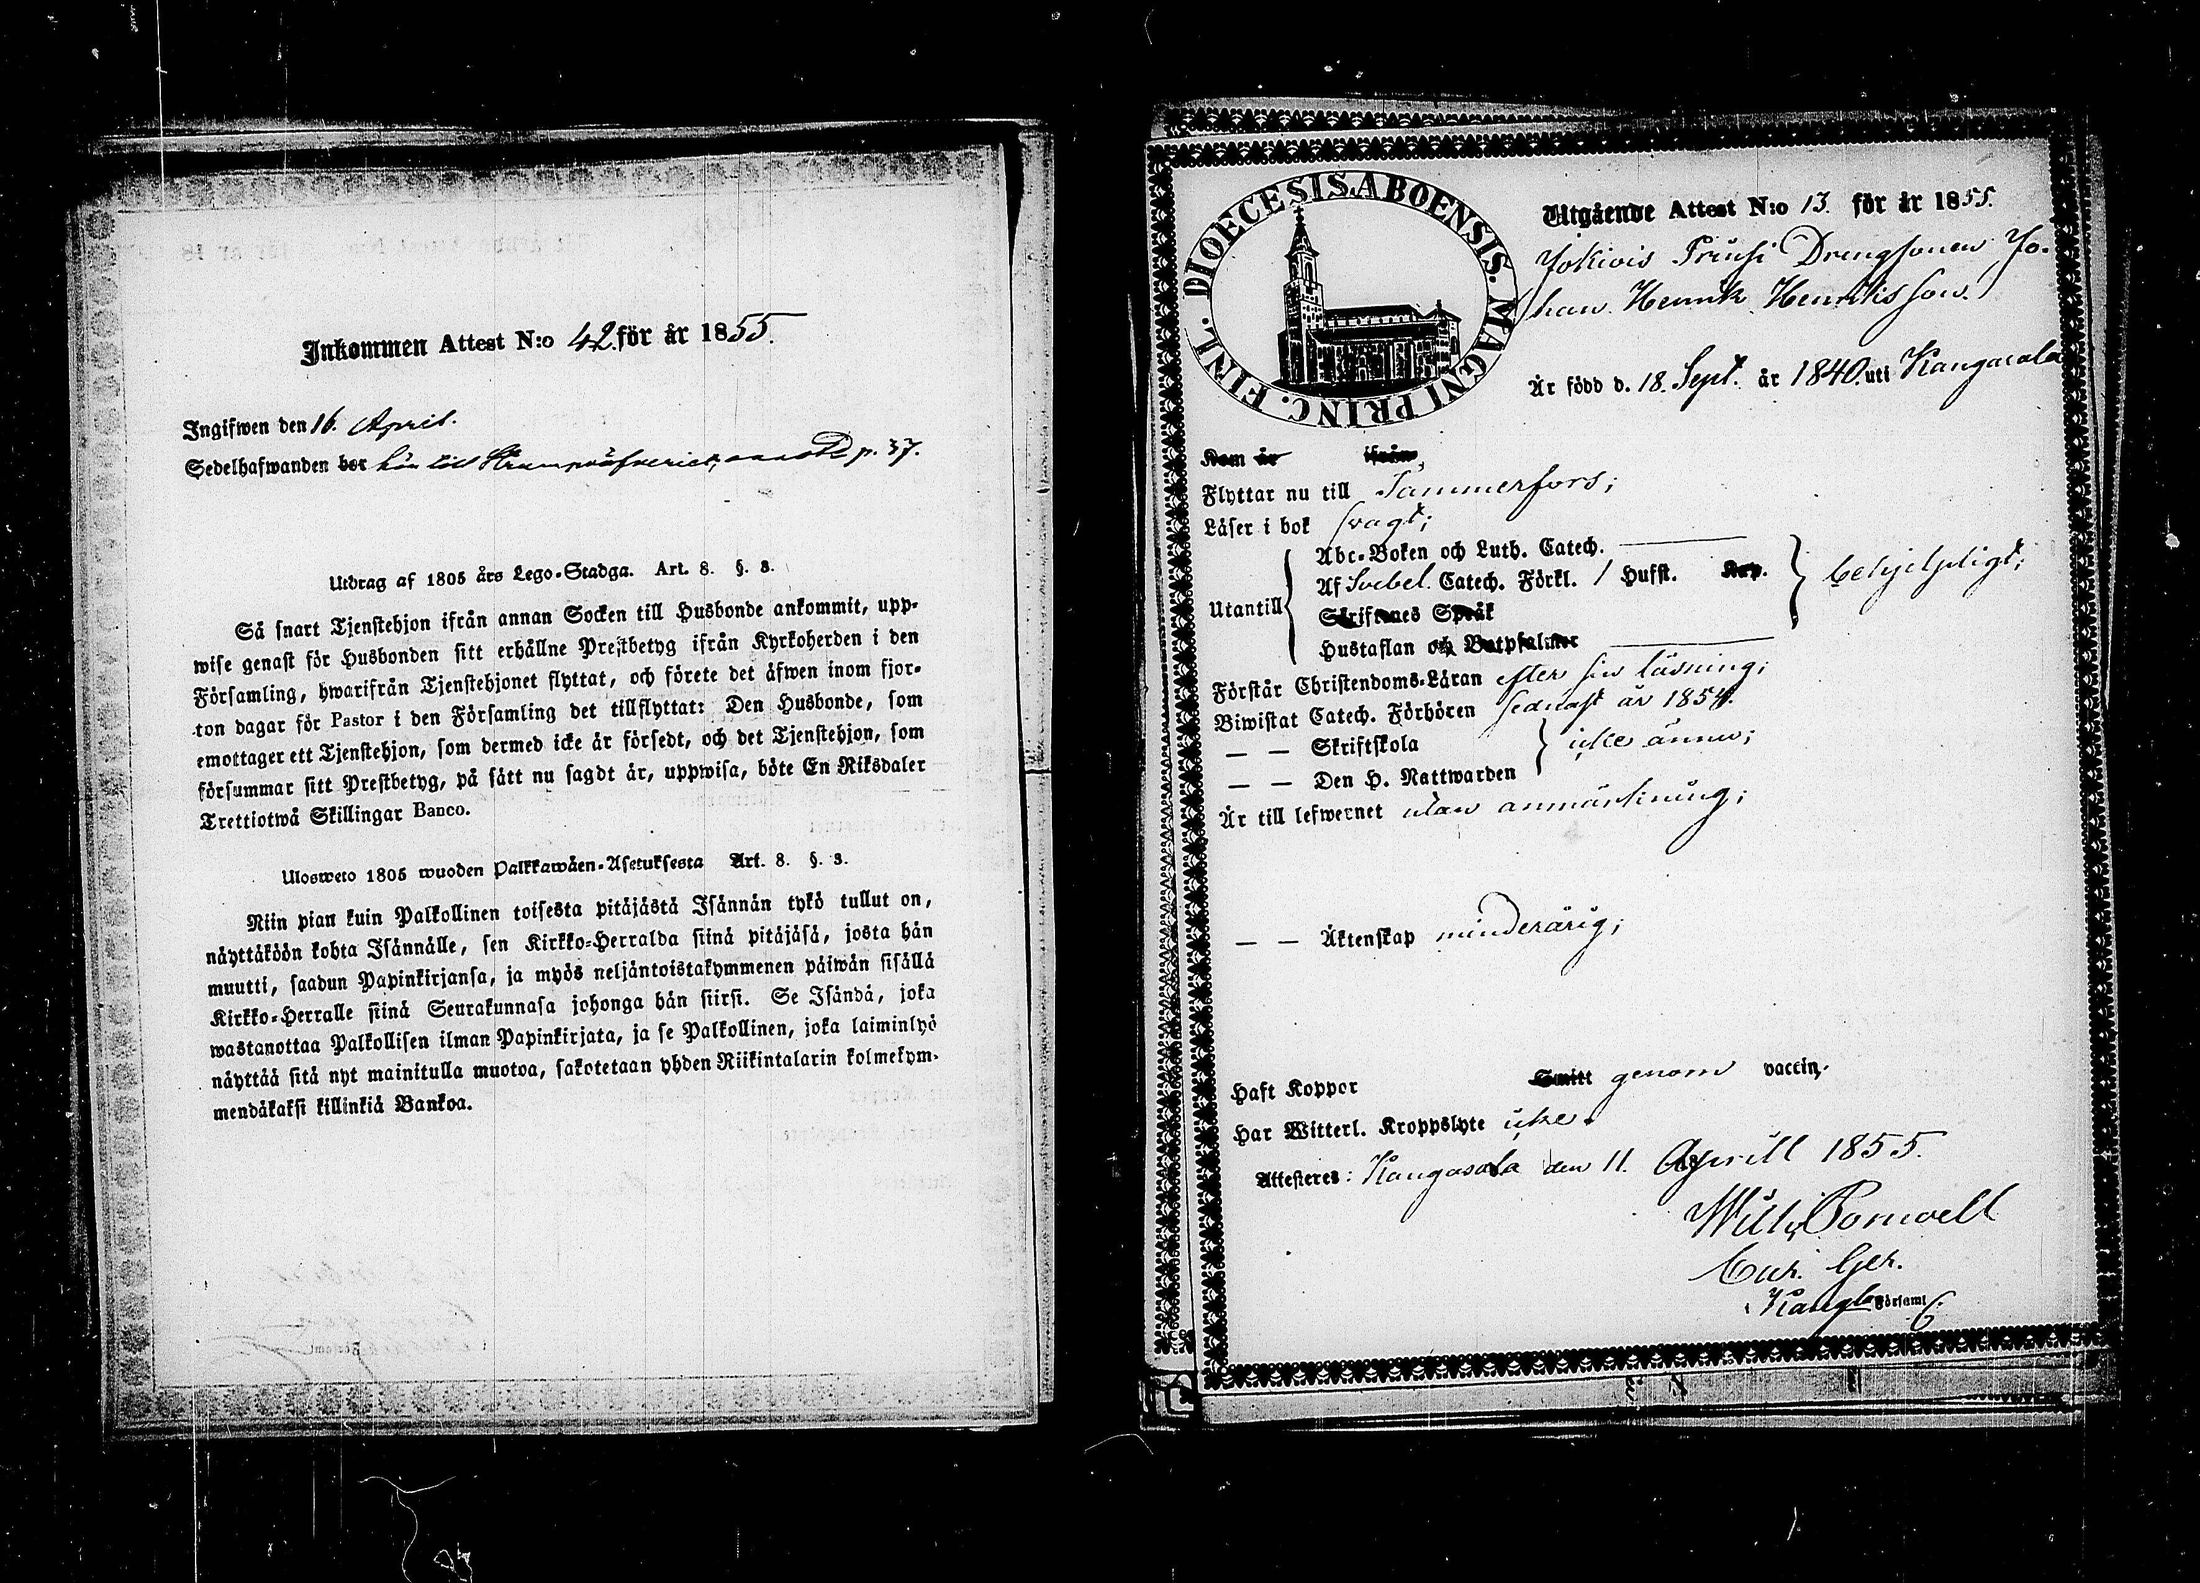 Inkommen Attest N:o 42. för år 1855.
Ingifwen den 16. April.
Sedelhafwanden bor hör till p. 37.
Utdrag af 1805 års Lego-Stadga. Art. 8. §. 3.
Så snart Tjenstehjon ifrån annan Socken till Husbonde ankommit, upp-
wise genast för Husbonden sitt erhållne Prestbetyg ifrån Kyrkoherden i den
Församling, hwarifrån Tjenstehjonet flyttat, och förete det äfwen inom fjor-
ton dagar för Pastor i den Församling det tillflyttat: Den Husbonde, som
emottager ett Tjenstehjon, som dermed icke är försedt, och det Tjenstehjon, som
försummar sitt Prestbetyg, på sätt nu sagdt är, uppwisa, böte En Riksdaler
Trettiotwå Skillingar Banco.
Ulosweto 1805 wuoden Palkkawäen-Asetuksesta Art. 8. §. 3.
Niin pian kuin Palkollinen toisesta pitäjästä Isännän tykö tullut on,
näyttäköön kohta Isännälle, sen Kirkko-Herralda siinä pitäjäsä, josta hän
muutti, saadun Papinkirjansa, ja myös neljäntoistakymmenen päiwän sisällä
Kirkko-Herralle siinä Seurakunnasa johonga hän siirsi. Se Isändä, joka
wastanottaa Palkollisen ilman Papinkirjata, ja se Palkollinen, joka laiminlyö
näyttää sitä nyt mainitulla muotoa, sakotetaan yhden Riikintalarin kolmekym-
mendäkaksi killinkiä Bankoa.
DIOECESIS ABOENSIS. MAGNI PRINC. FINL.
Utgående Attest N:o 13. för år 1855.
Jokiois Prusi Drengsonen Jo-
han Henrik Henriksson.
Är född d. 18. Sept. år 1840. uti Kangasala
Kom år ifrån
Flyttar nu till Tammerfors;
Läser i bok svagt;
Utantill
Abc-Boken och Luth. Catech.
Af Svebel. Catech. Förkl. 1 Hufst. Kap.
Skriftenes Språk
Hustaflan och Botpsalmer
behjelpligt;
Förstår Christendoms-Läran efter sin läsning;
Biwistat Catech. Förhören sednast år 1854.
— — Skriftskola
— — Den H. Nattwarden
icke ännu;
Är till lefwernet utan anmärkning;
— — Äktenskap minderårig;
Haft Koppor Smitt genom vaccin.
Har Witterl. Kroppslyte icke.
Attesteres: Kangasala den 11. Aprill 1855.
Församl